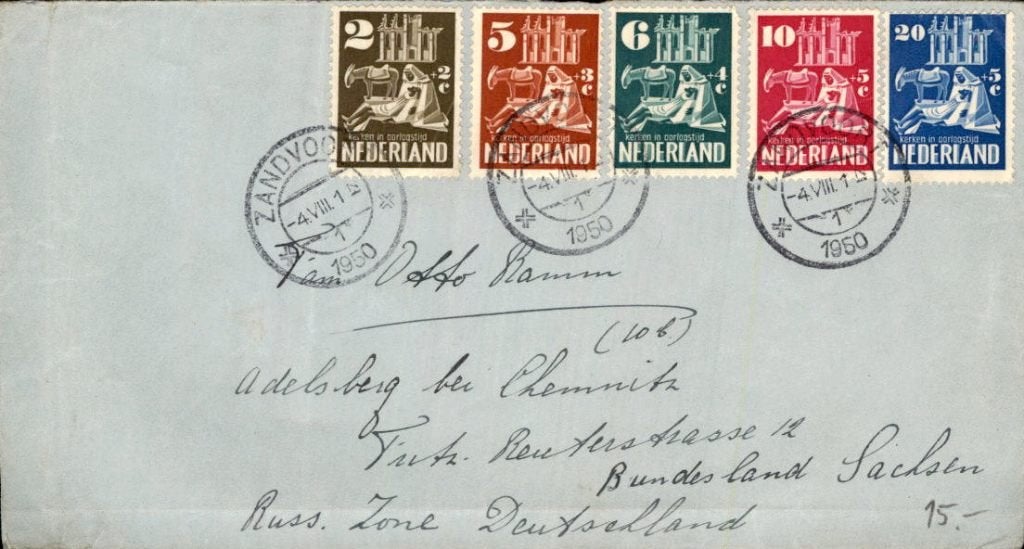 2 +2c kerken in oorlogstijd NEDERLAND
5 +3c kerken in oorlogstijd NEDERLAND
6 +4c kerken in oorlogstijd NEDERLAND
10 +5c kerken in oorlogstijd NEDERLAND
20 +5c kerken in oorlogstijd NEDERLAND
ZANDVOO
-4.VIII.1
1
1950
-4.VIII.1
1
1950
ZANDVOO
-4.VIII.1
1
1950
Fam Otto Ramm
(10b)
Adelsberg bei Chemnitz
Fritz. Reuterstrasse 12
Bundesland Sachsen
Russ. Zone Deutschland
15.-